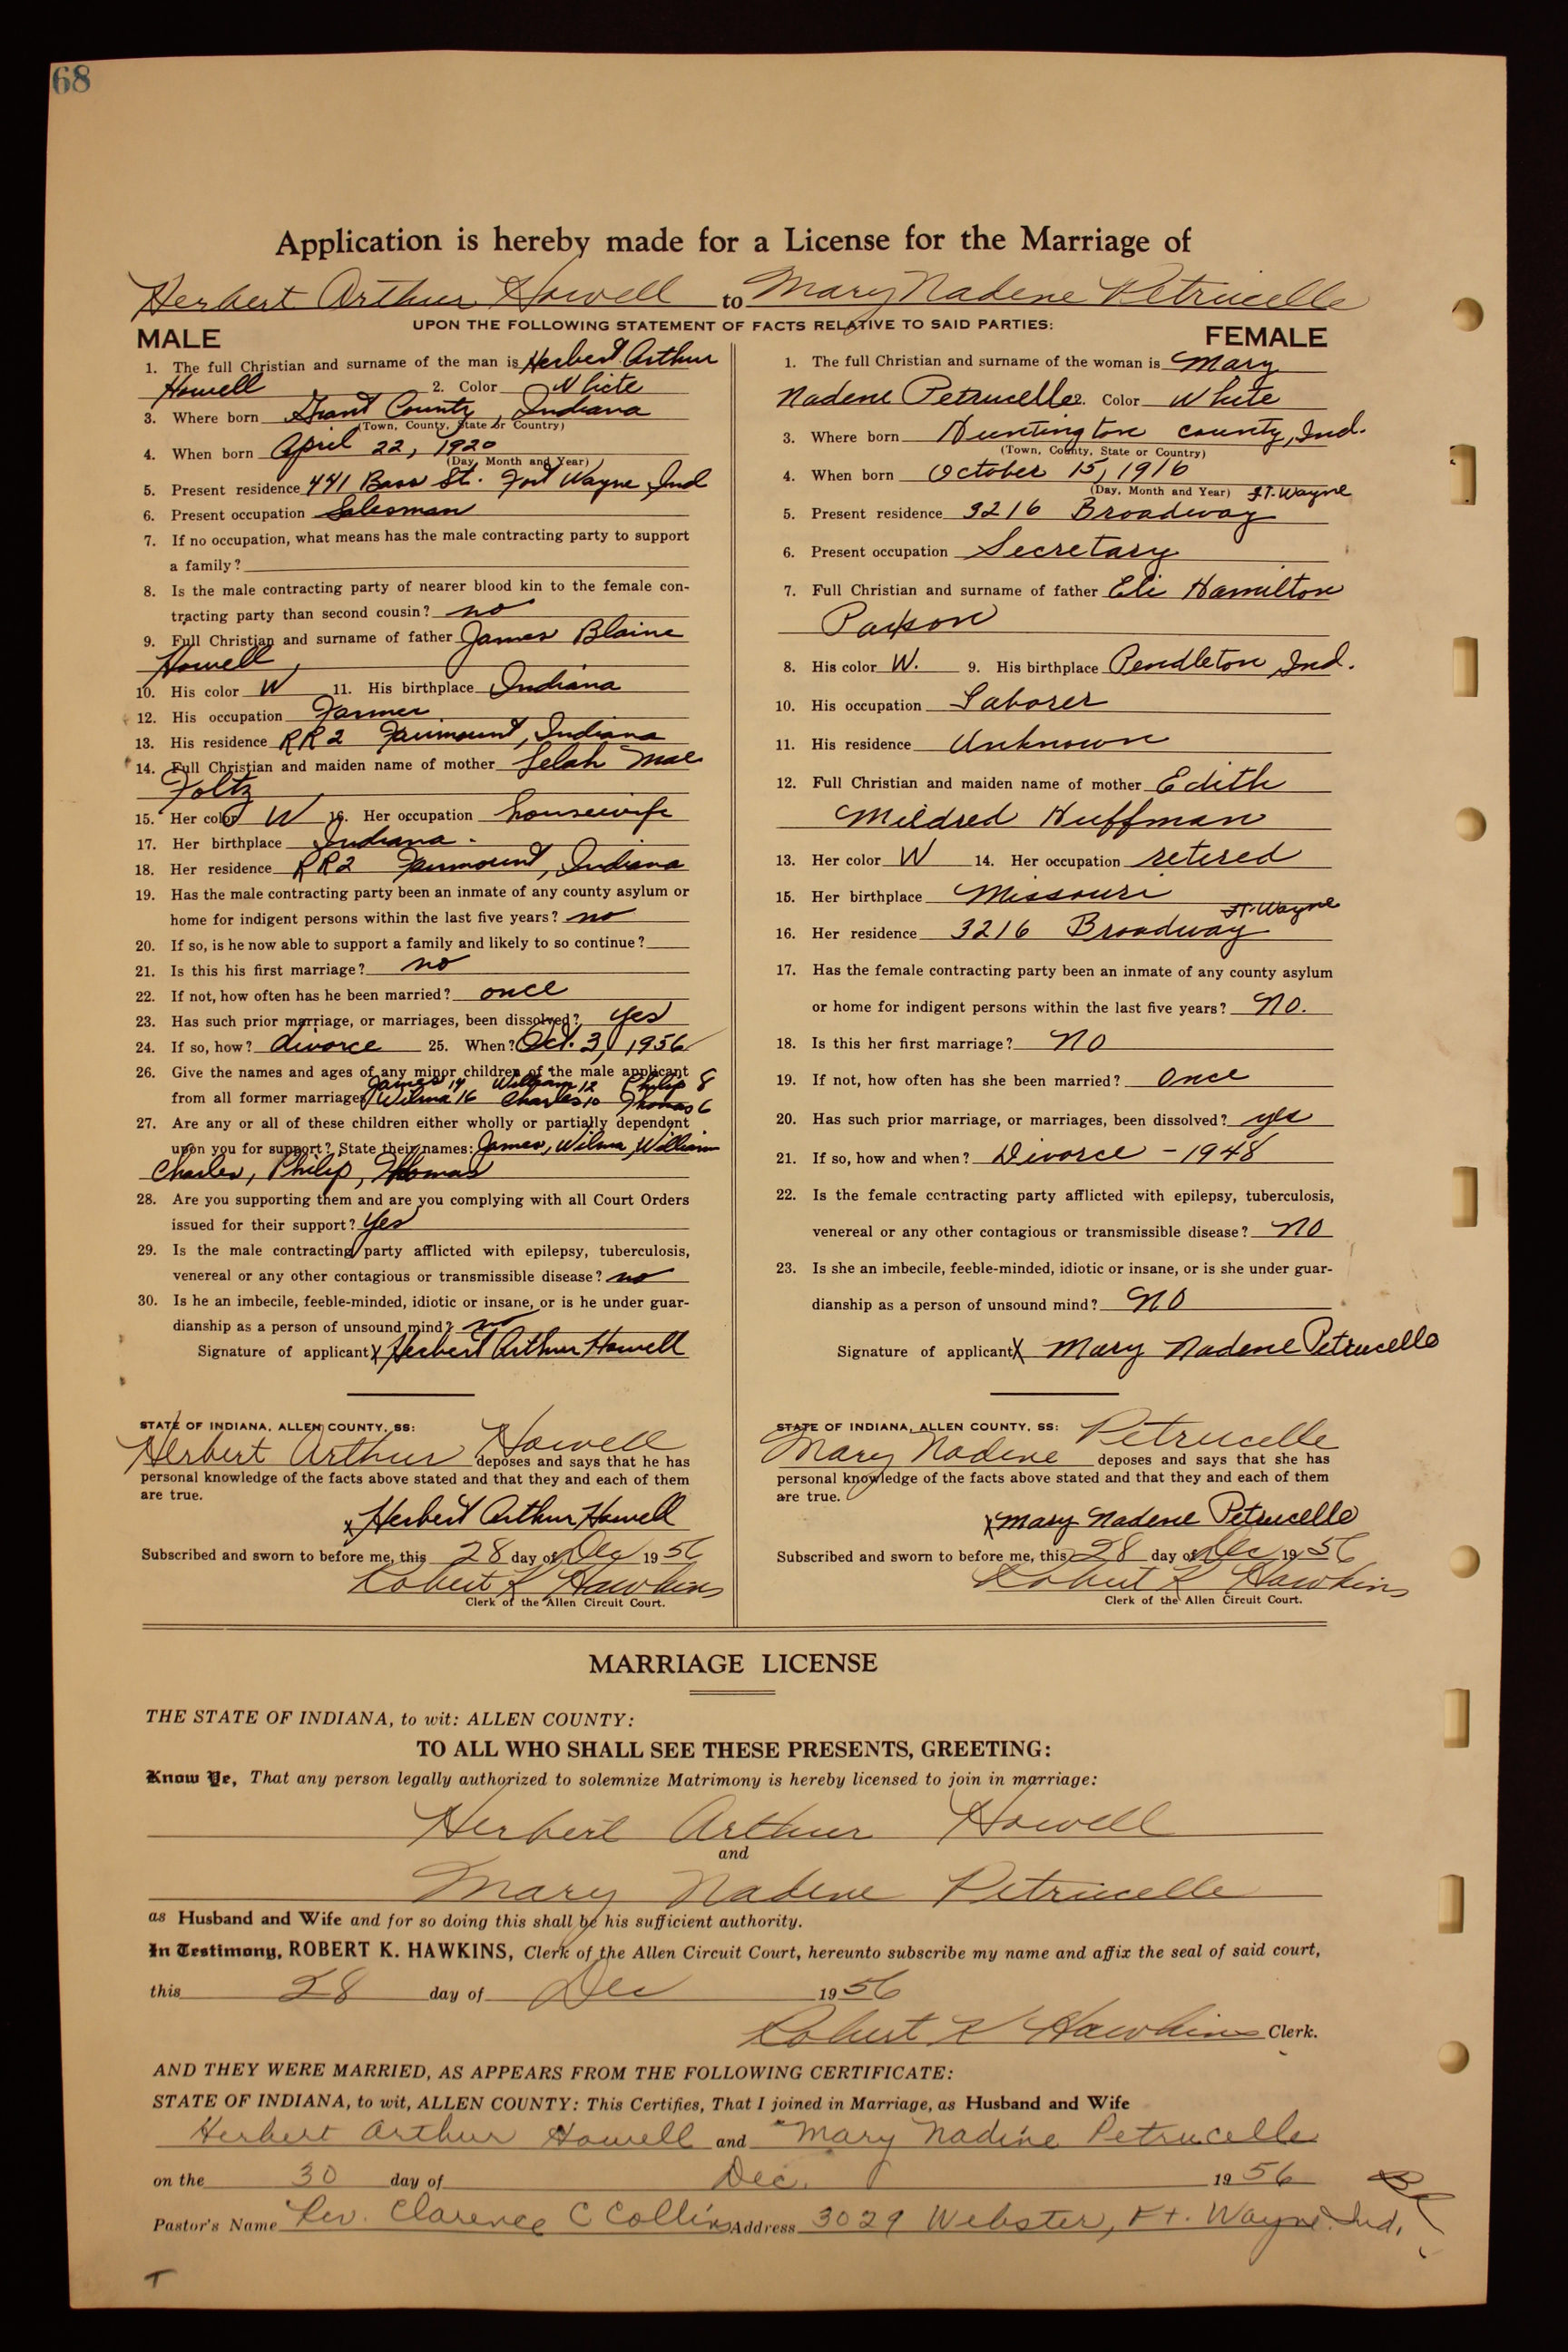 68
Application is hereby made for a License for the Marriage of
Herbert Arthur Howell to Mary Nadene Petrucelle
UPON THE FOLLOWING STATEMENT OF FACTS RELATIVE TO SAID PARTIES:
MALE
1. The full Christian and surname of the man is Herbert Arthur
Howell 2. Color White
3. Where born Grant County, Indiana
(Town, County, State or Country)
4. When born April 22, 1920
(Day, Month and Year)
5. Present residence 441 Bass St. Fort Wayne Ind
6. Present occupation Salesman
7. If no occupation, what means has the male contracting party to support
a family?
8. Is the male contracting party of nearer blood kin to the female con-
tracting party than second cousin? no
9. Full Christian and surname of father James Blaine
Howell
10. His color W 11. His birthplace Indiana
12. His occupation Farmer
13. His residence RR2 Fairmount, Indiana
14. Full Christian and maiden name of mother Selah Mae
Foltz
15. Her color W 16. Her occupation housewife
17. Her birthplace Indiana
18. Her residence RR2 Fairmount, Indiana
19. Has the male contracting party been an inmate of any county asylum or
home for indigent persons within the last five years? no
20. If so, is he now able to support a family and likely to so continue?
21. Is this his first marriage? no
22. If not, how often has he been married? once
23. Has such prior marriage, or marriages, been dissolved? yes
24. If so, how? divorce 25. When? Oct. 3, 1956
26. Give the names and ages of any minor children of the male applicant
James 17 William 12 Philip 8
from all former marriages Wilma 16 Charles 10 Thomas 6
27. Are any or all of these children either wholly or partially dependent
upon you for support? State their names: James, Wilma, William
Charles, Philip, Thomas
28. Are you supporting them and are you complying with all Court Orders
issued for their support? Yes
29. Is the male contracting party afflicted with epilepsy, tuberculosis,
venereal or any other contagious or transmissible disease? no
30. Is he an imbecile, feeble-minded, idiotic or insane, or is he under guar-
dianship as a person of unsound mind? no
Signature of applicant X Herbert Arthur Howell
STATE OF INDIANA, ALLEN COUNTY, SS:
Herbert Arthur Howell deposes and says that he has
personal knowledge of the facts above stated and that they and each of them
are true.
x Herbert Arthur Howell
Subscribed and sworn to before me, this 28 day of Dec 1956
Robert K Hawkins
Clerk of the Allen Circuit Court.
FEMALE
1. The full Christian and surname of the woman is Mary
Nadene Petrucelle 2. Color White
3. Where born Huntington county, Ind.
(Town, County, State or Country)
4. When born October 15, 1916
(Day, Month and Year) Ft. Wayne
5. Present residence 3216 Broadway
6. Present occupation Secretary
7. Full Christian and surname of father Eli Hamilton
Paxson
8. His color W. 9. His birthplace Pendleton Ind.
10. His occupation Laborer
11. His residence Unknown
12. Full Christian and maiden name of mother Edith
Mildred Huffman
13. Her color W 14. Her occupation retired
15. Her birthplace Missouri
Ft. Wayne
16. Her residence 3216 Broadway
17. Has the female contracting party been an inmate of any county asylum
or home for indigent persons within the last five years? No.
18. Is this her first marriage? No
19. If not, how often has she been married? Once
20. Has such prior marriage, or marriages, been dissolved? yes
21. If so, how and when? Divorce - 1948
22. Is the female contracting party afflicted with epilepsy, tuberculosis,
venereal or any other contagious or transmissible disease? No
23. Is she an imbecile, feeble-minded, idiotic or insane, or is she under guar-
dianship as a person of unsound mind? No
Signature of applicant X Mary Nadene Petrucelle
STATE OF INDIANA, ALLEN COUNTY, SS:
Mary Nadene Petrucelle deposes and says that she has
personal knowledge of the facts above stated and that they and each of them
are true.
x Mary Nadene Petrucelle
Subscribed and sworn to before me, this 28 day of Dec 1956
Robert K Hawkins
Clerk of the Allen Circuit Court.
MARRIAGE LICENSE
THE STATE OF INDIANA, to wit: ALLEN COUNTY:
TO ALL WHO SHALL SEE THESE PRESENTS, GREETING:
Know Ye, That any person legally authorized to solemnize Matrimony is hereby licensed to join in marriage:
Herbert Arthur Howell
and
Mary Nadene Petrucelle
as Husband and Wife and for so doing this shall be his sufficient authority.
In Testimony, ROBERT K. HAWKINS, Clerk of the Allen Circuit Court, hereunto subscribe my name and affix the seal of said court,
this 28 day of Dec 1956
Robert K Hawkins Clerk.
AND THEY WERE MARRIED, AS APPEARS FROM THE FOLLOWING CERTIFICATE:
STATE OF INDIANA, to wit, ALLEN COUNTY: This Certifies, That I joined in Marriage, as Husband and Wife
Herbert Arthur Howell and Mary Nadine Petrucelle
on the 30 day of Dec. 1956
Pastor's Name Rev. Clarence C Collins Address 3029 Webster, Ft. Wayne Ind.
T